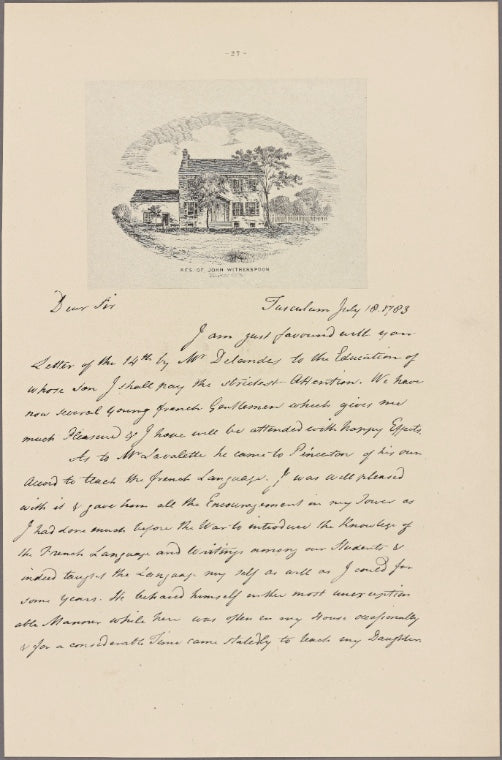 - 27 -
RES. OF JOHN WITHERSPOON
Dear Sir
Tusculum July 18. 1783
I am just favoured with your
Letter of the 14th by Mr Delandes to the Education of
whose son I shall pay the strictest Attention. We have
now several young French Gentlemen which gives me
much Pleasure & I hope will be attended with happy Effects
As to Mr Lavalette he came to Princeton of his own
Accord to teach the French Language. I was well pleased
with it & gave him all the Encouragement in my Power as
I had done much before the War to introduce the Knowledge of
the French Language and Writings among our Students &
indeed taught the Language my self as well as I could for
some years. He behaved himself in the most unexception
able Manner while here was often in my House occasionally
& for a considerable Time came statedly to teach my Daughter